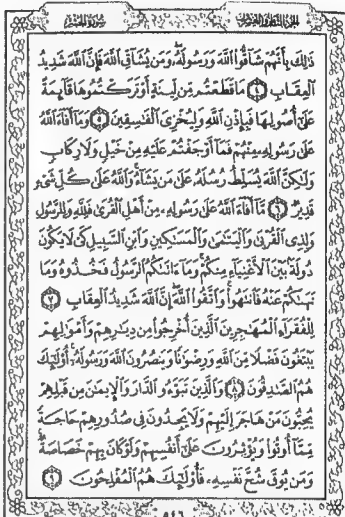 الجزء الثامن والعشرون سورة الحشر
ذَٰلِكَ بِأَنَّهُمْ شَاقُّوا۟ ٱللَّهَ وَرَسُولَهُۥ وَمَن يُشَآقِّ ٱللَّهَ فَإِنَّ ٱللَّهَ شَدِيدُ
ٱلْعِقَابِ ٤ مَا قَطَعْتُم مِّن لِّينَةٍ أَوْ تَرَكْتُمُوهَا قَآئِمَةً
عَلَىٰٓ أُصُولِهَا فَبِإِذْنِ ٱللَّهِ وَلِيُخْزِىَ ٱلْفَٰسِقِينَ ٥ وَمَآ أَفَآءَ ٱللَّهُ
عَلَىٰ رَسُولِهِۦ مِنْهُمْ فَمَآ أَوْجَفْتُمْ عَلَيْهِ مِنْ خَيْلٍ وَلَا رِكَابٍ
وَلَٰكِنَّ ٱللَّهَ يُسَلِّطُ رُسُلَهُۥ عَلَىٰ مَن يَشَآءُ وَٱللَّهُ عَلَىٰ كُلِّ شَىْءٍ
قَدِيرٌ ٦ مَّآ أَفَآءَ ٱللَّهُ عَلَىٰ رَسُولِهِۦ مِنْ أَهْلِ ٱلْقُرَىٰ فَلِلَّهِ وَلِلرَّسُولِ
وَلِذِى ٱلْقُرْبَىٰ وَٱلْيَتَٰمَىٰ وَٱلْمَسَٰكِينِ وَٱبْنِ ٱلسَّبِيلِ كَىْ لَا يَكُونَ
دُولَةًۢ بَيْنَ ٱلْأَغْنِيَآءِ مِنكُمْ وَمَآ ءَاتَىٰكُمُ ٱلرَّسُولُ فَخُذُوهُ وَمَا
نَهَىٰكُمْ عَنْهُ فَٱنتَهُوا۟ وَٱتَّقُوا۟ ٱللَّهَ إِنَّ ٱللَّهَ شَدِيدُ ٱلْعِقَابِ ٧
لِلْفُقَرَآءِ ٱلْمُهَٰجِرِينَ ٱلَّذِينَ أُخْرِجُوا۟ مِن دِيَٰرِهِمْ وَأَمْوَٰلِهِمْ
يَبْتَغُونَ فَضْلًا مِّنَ ٱللَّهِ وَرِضْوَٰنًا وَيَنصُرُونَ ٱللَّهَ وَرَسُولَهُۥٓ أُو۟لَٰٓئِكَ
هُمُ ٱلصَّٰدِقُونَ ٨ وَٱلَّذِينَ تَبَوَّءُو ٱلدَّارَ وَٱلْإِيمَٰنَ مِن قَبْلِهِمْ
يُحِبُّونَ مَنْ هَاجَرَ إِلَيْهِمْ وَلَا يَجِدُونَ فِى صُدُورِهِمْ حَاجَةً
مِّمَّآ أُوتُوا۟ وَيُؤْثِرُونَ عَلَىٰٓ أَنفُسِهِمْ وَلَوْ كَانَ بِهِمْ خَصَاصَةٌ
وَمَن يُوقَ شُحَّ نَفْسِهِۦ فَأُو۟لَٰٓئِكَ هُمُ ٱلْمُفْلِحُونَ ٩
٥٤٦